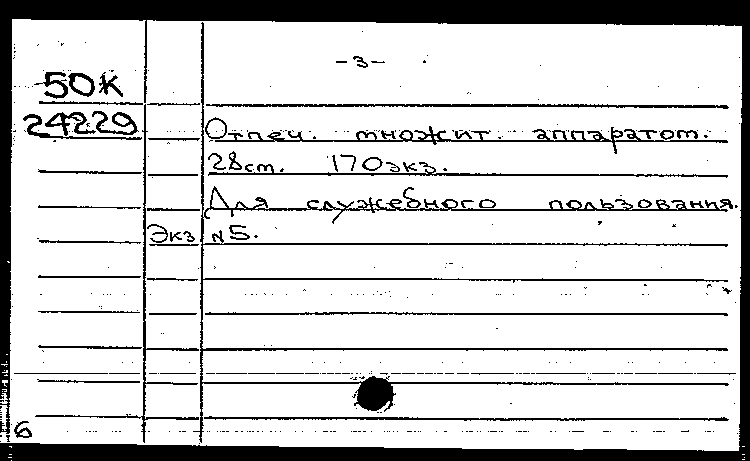 -3-
50К
24229 Отпеч. множит. аппаратом.
28 ст. 170 экз.
Для служебного пользования.
Экз N5.
6